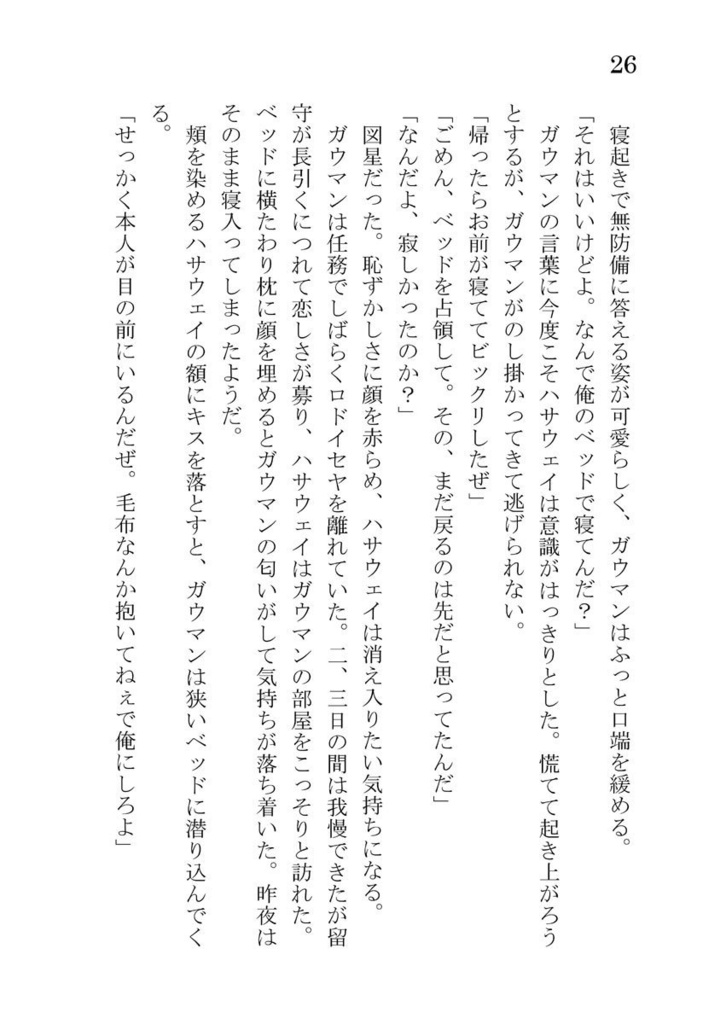 26
寝起きで無防備に答える姿が可愛らしく、ガウマンはふっと口端を緩める。
「それはいいけどよ。なんで俺のベッドで寝てんだ？」
ガウマンの言葉に今度こそハサウェイは意識がはっきりとした。慌てて起き上がろう
とするが、ガウマンがのし掛かってきて逃げられない。
「帰ったらお前が寝ててビックリしたぜ」
「ごめん、ベッドを占領して。その、まだ戻るのは先だと思ってたんだ」
「なんだよ、寂しかったのか？」
図星だった。恥ずかしさに顔を赤らめ、ハサウェイは消え入りたい気持ちになる。
ガウマンは任務でしばらくロドイセヤを離れていた。二、三日の間は我慢できたが留
守が長引くにつれて恋しさが募り、ハサウェイはガウマンの部屋をこっそりと訪れた。
ベッドに横たわり枕に顔を埋めるとガウマンの匂いがして気持ちが落ち着いた。昨夜は
そのまま寝入ってしまったようだ。
頬を染めるハサウェイの額にキスを落とすと、ガウマンは狭いベッドに潜り込んでく
る。
「せっかく本人が目の前にいるんだぜ。毛布なんか抱いてねぇで俺にしろよ」